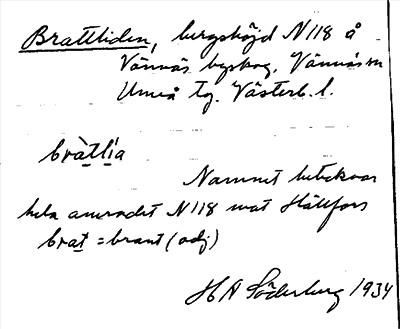 Brattliden, bergshöjd N 118 å
Vännäs byskog, Vännäs sn
Umeå tg. Västerb. l.
bràtlía
Namnet betecknar
hela området N 118 mot Hällfors
brat = brant (adj)
H N Söderberg 1934